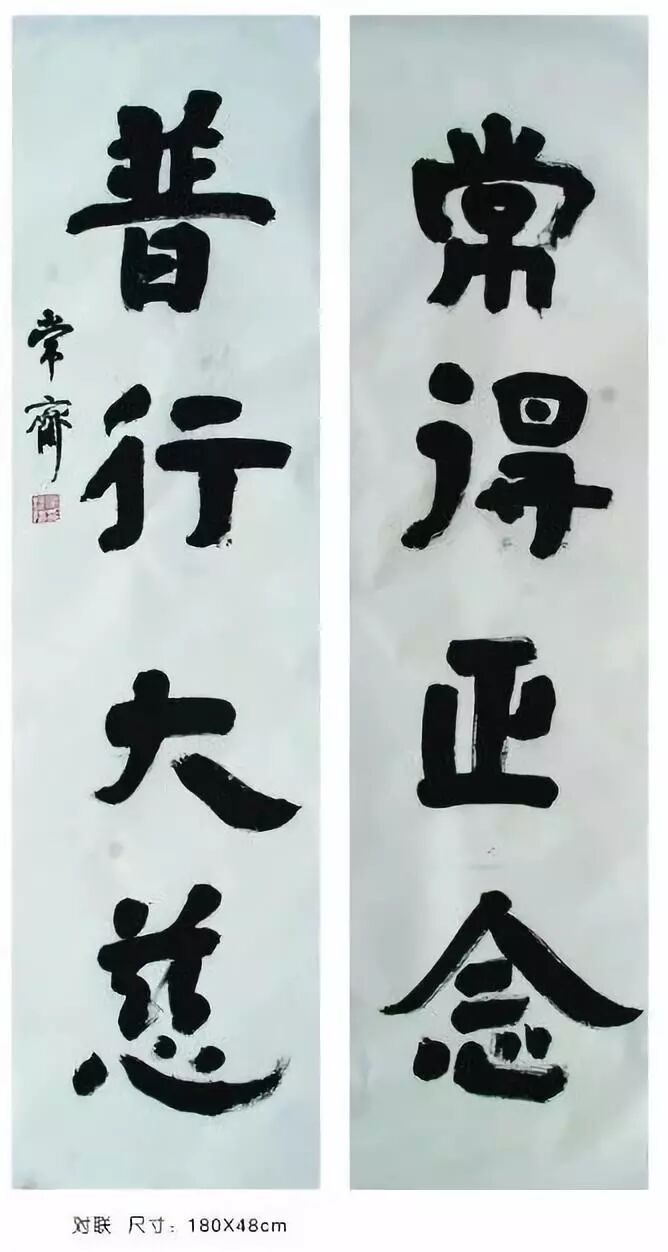 常得正念
普行大慈
常齋
对联 尺寸：180X48cm